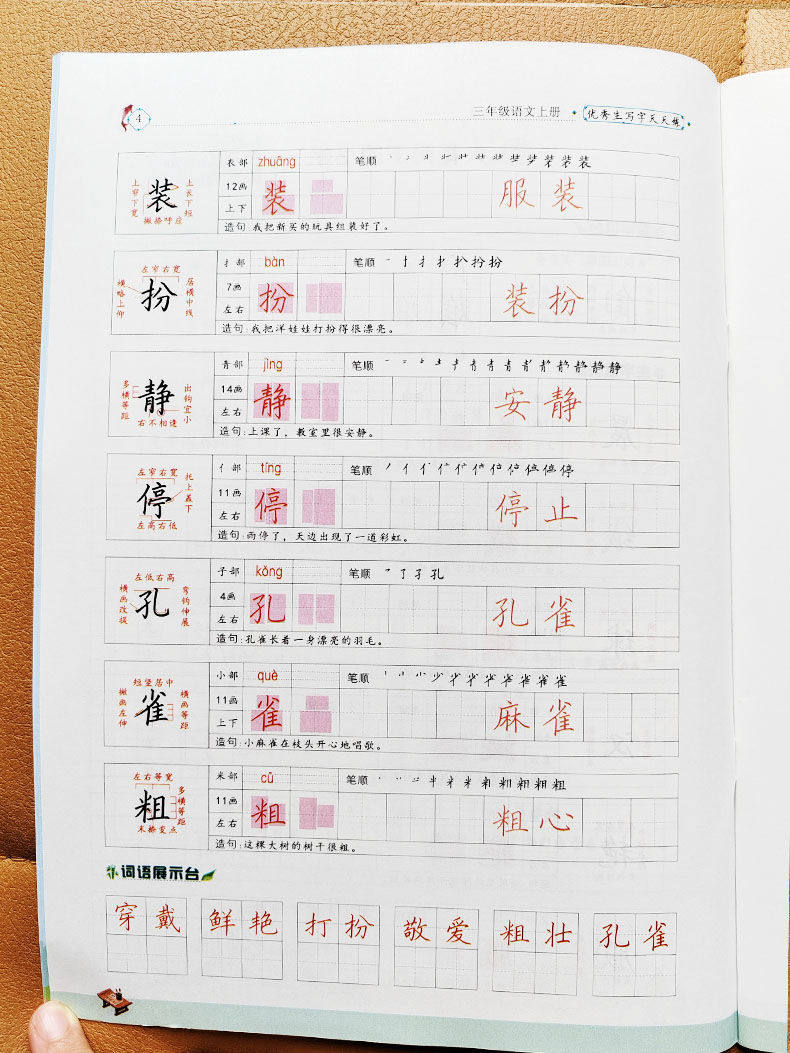 4 三年级语文上册 优秀生写字天天练
衣部 zhuāng 笔顺
上窄下宽 装 上长下短
12画 装 服装
撇捺呼应
上下
造句:我把新买的玩具组装好了。
扌部 bàn 笔顺
左窄右宽
横略上仰 扮 居横中线
7画 扮 装扮
左右
造句:我把洋娃娃打扮得很漂亮。
青部 jìng 笔顺
多横等距 静 出钩宜小
14画 静 安静
右不相逢
左右
造句:上课了,教室里很安静。
亻部 tíng 笔顺
左窄右宽
停 托上盖下
11画 停 停止
左高右低
左右
造句:雨停了,天边出现了一道彩虹。
子部 kǒng 笔顺
左低右高
横画改提 孔 弯钩伸展
4画 孔 孔雀
左右
造句:孔雀长着一身漂亮的羽毛。
小部 què 笔顺
短竖居中
撇画左伸 雀 横画等距
11画 雀 麻雀
上下
造句:小麻雀在枝头开心地唱歌。
米部 cū 笔顺
左右等宽
粗 多横等距
11画 粗 粗心
末捺变点
左右
造句:这棵大树的树干很粗。
词语展示台
穿戴 鲜艳 打扮 敬爱 粗壮 孔雀